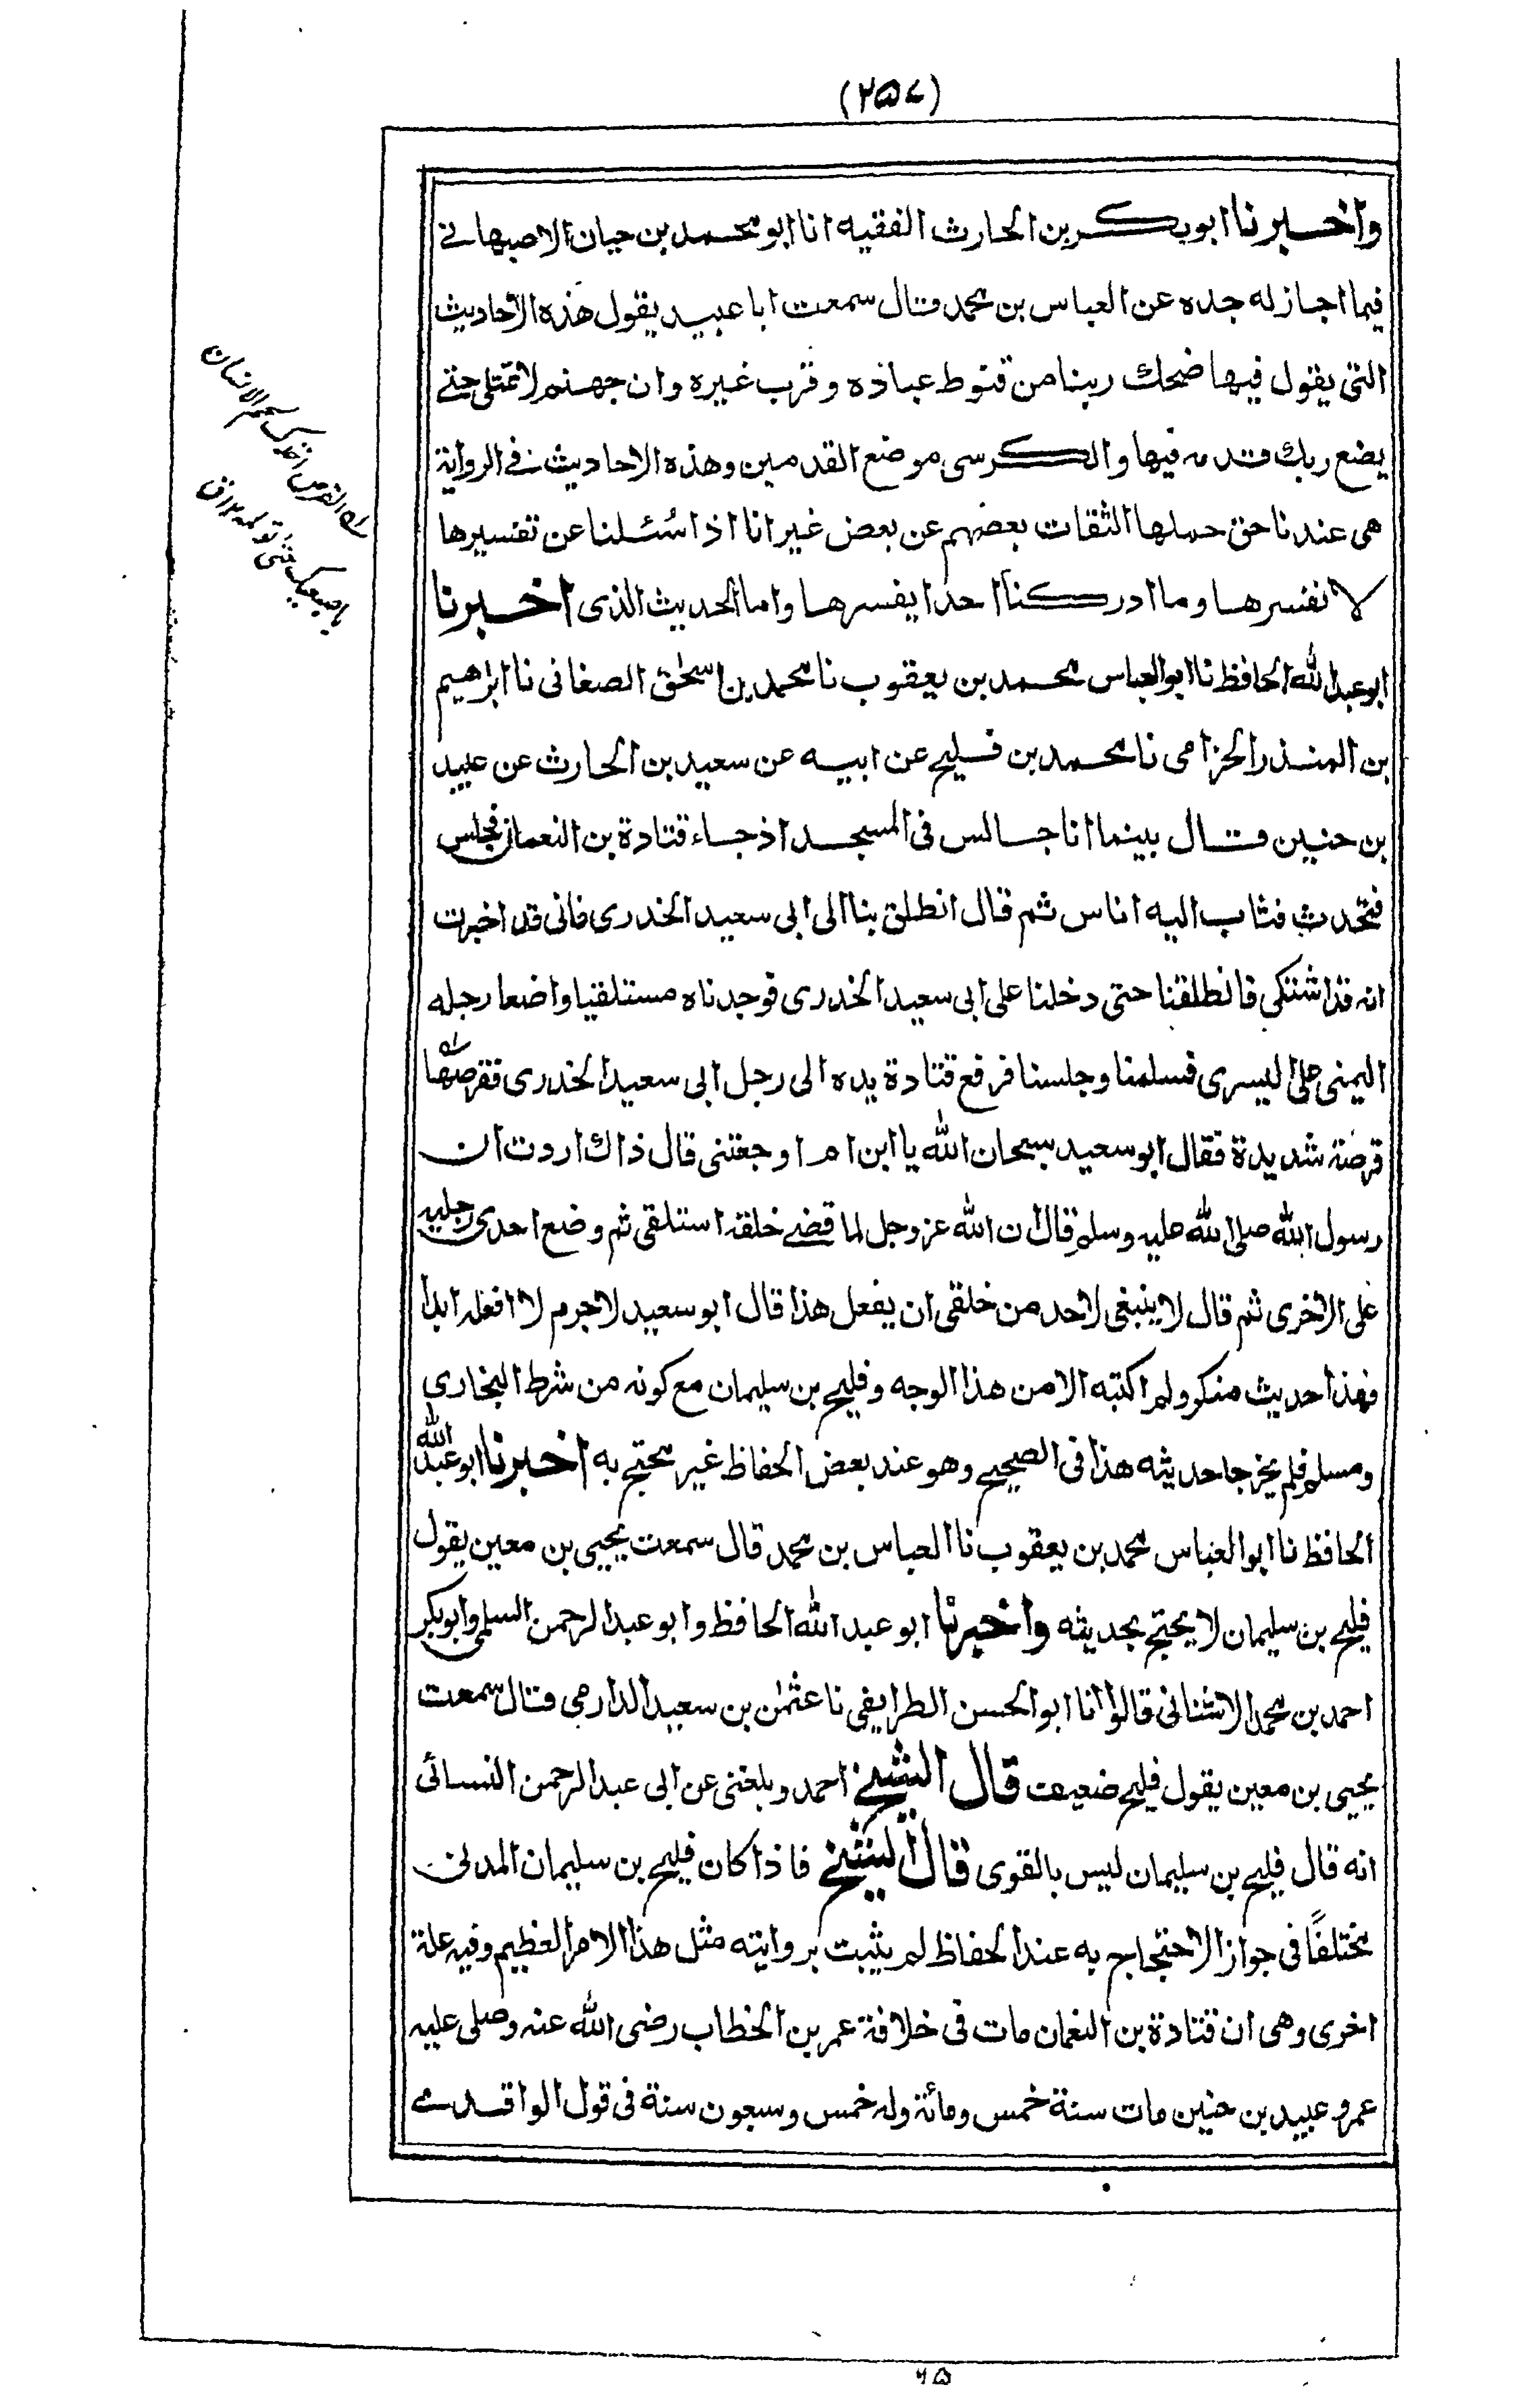 (٢٥٧)
واخبرنا ابوبكر بن الحارث الفقيه انا ابو محمد بن حيان الاصبهانے
فيما اجاز له جده عن العباس بن محمد قال سمعت ابا عبيد يقول هذه الاحاديث
التى يقول فيها ضحك ربنا من قنوط عباده وقرب غيره وان جهنم لا تمتلى حتے
يضع ربك قدمه فيها والكرسى موضع القدمين وهذه الاحاديث فے الرواية
هى عندنا حق حملها الثقات بعضهم عن بعض غير انا اذا سُئلنا عن تفسيرها
لا نفسرها وما ادركنا احدا يفسرها واما الحديث الذى اخبرنا
ابو عبد الله الحافظ نا ابو العباس محمد بن يعقوب نا محمد بن اسحٰق الصغانى نا ابراهيم
بن المنذر الحزامى نا محمد بن فليح عن ابيه عن سعيد بن الحارث عن عبيد
بن حنين قال بينما انا جالس فى المسجد اذ جاء قتادة بن النعمان فجلس
فتحدث فثاب اليه اناس ثم قال انطلق بنا الى ابى سعيد الخدرى فانى قد اخبرت
انه قد اشتكى فانطلقنا حتى دخلنا على ابى سعيد الخدرى فوجدناه مستلقيا واضعا رجله
اليمنى على اليسرى فسلمنا وجلسنا فرفع قتادة يده الى رجل ابى سعيد الخدرى فقرصها
قرصة شديدة فقال ابو سعيد سبحان الله يا ابن ام اوجعتنى قال ذاك اردت ان
رسول الله صلى الله عليه وسلم قال ان الله عز وجل لما قضے خلقه استلقى ثم وضع احدى رجليه
على الاخرى ثم قال لا ينبغى لاحد من خلقى ان يفعل هذا قال ابو سعيد لا جرم لا افعله ابدا
فهذا حديث منكر ولم اكتبه الا من هذا الوجه وفليح بن سليمان مع كونه من شرط البخارى
ومسلم فلم يخرجا حديثه هذا فى الصحيح وهو عند بعض الحفاظ غير محتج به اخبرنا ابو عبد الله
الحافظ نا ابو العباس محمد بن يعقوب نا العباس بن محمد قال سمعت يحيى بن معين يقول
فليح بن سليمان لا يحتج بحديثه واخبرنا ابو عبد الله الحافظ وابو عبد الرحمن السلمى وابو بكر
احمد بن محمد الاشنانى قالوا انا ابو الحسن الطرايفى نا عثمٰن بن سعيد الدارمى قال سمعت
يحيى بن معين يقول فليح ضعيف قال الشيخ احمد وبلغنى عن ابى عبد الرحمن النسائى
انه قال فليح بن سليمان ليس بالقوى قال الشيخ فاذا كان فليح بن سليمان المدنى
مختلفًا فى جواز الاحتجاج به عند الحفاظ لم يثبت بروايته مثل هذا الامر العظيم وفيه علة
اخرى وهى ان قتادة بن النعمان مات فى خلافة عمر بن الخطاب رضى الله عنه وصلى عليه
عمر وعبيد بن حنين مات سنة خمس ومائة وله خمس وسبعون سنة فى قول الواقدے
له القرص اخذك لحم الانسان
باصبعيك حتى تولمه
٦٥